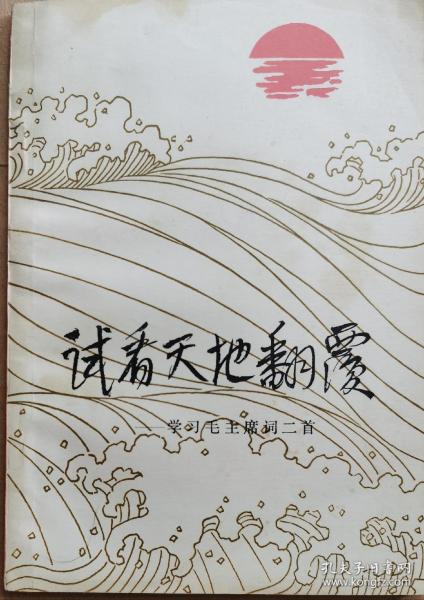 试看天地翻覆
——学习毛主席词二首
孔夫子旧书网